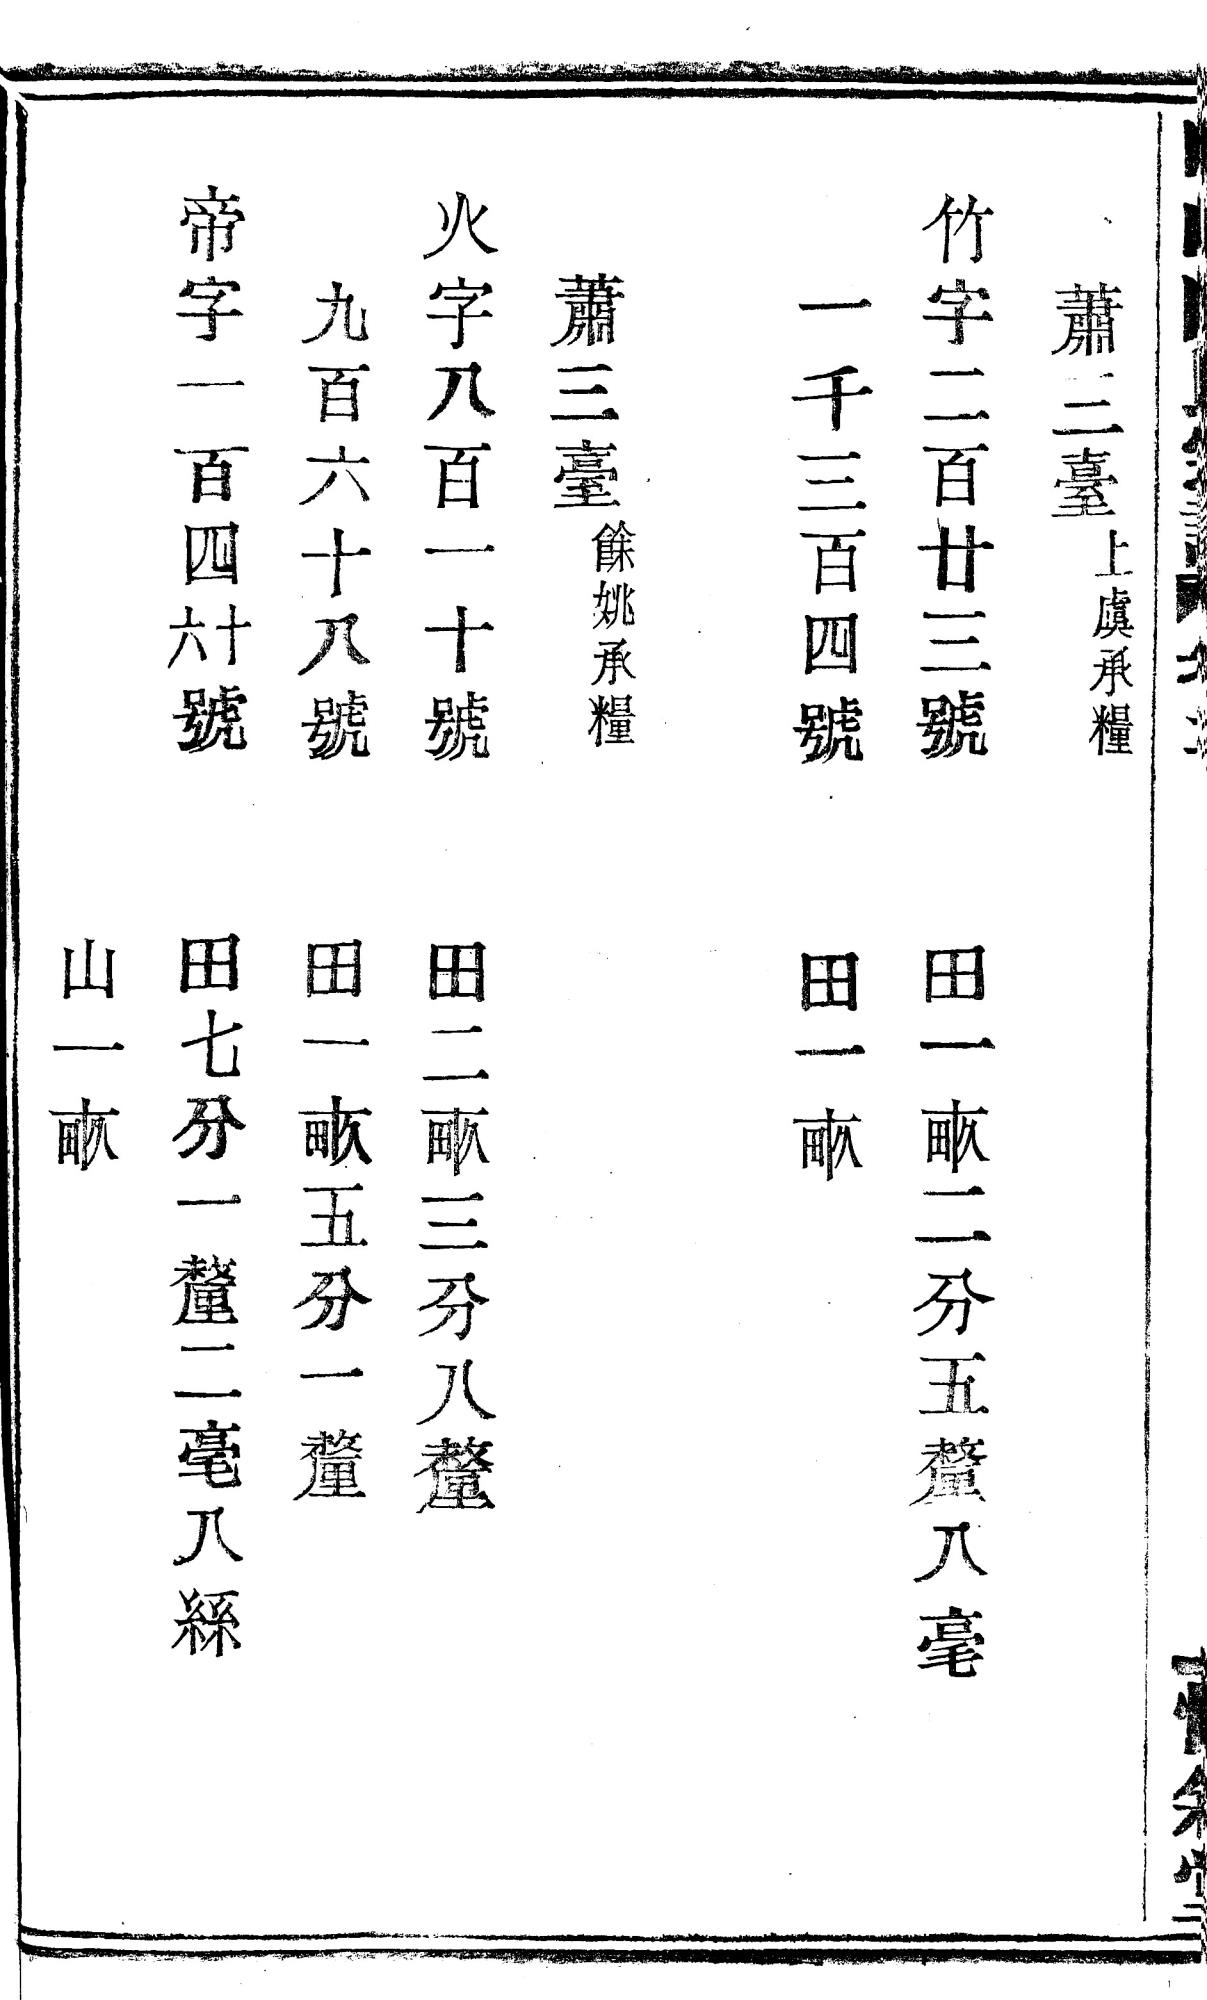 蕭三臺上虞承糧
竹字二百廿三號　田一畝二分五釐八毫
一千三百四號　田一畝
蕭三臺餘姚承糧
火字八百一十號　田二畝三分八釐
九百六十八號　田一畝五分一釐
帝字一百四十六號　田七分一釐二毫八絲
山一畝